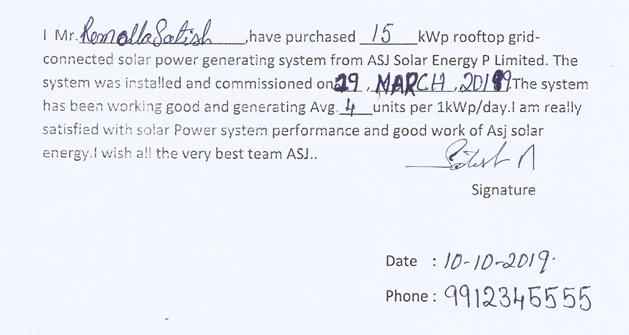 I Mr. Remalla Satish ,have purchased 15 kWp rooftop grid-
connected solar power generating system from ASJ Solar Energy P Limited. The
system was installed and commissioned on 29, MARCH, 2019.The system
has been working good and generating Avg. 4 units per 1kWp/day.I am really
satisfied with solar Power system performance and good work of Asj solar
energy.I wish all the very best team ASJ..
Signature
Date : 10-10-2019.
Phone : 9912345555